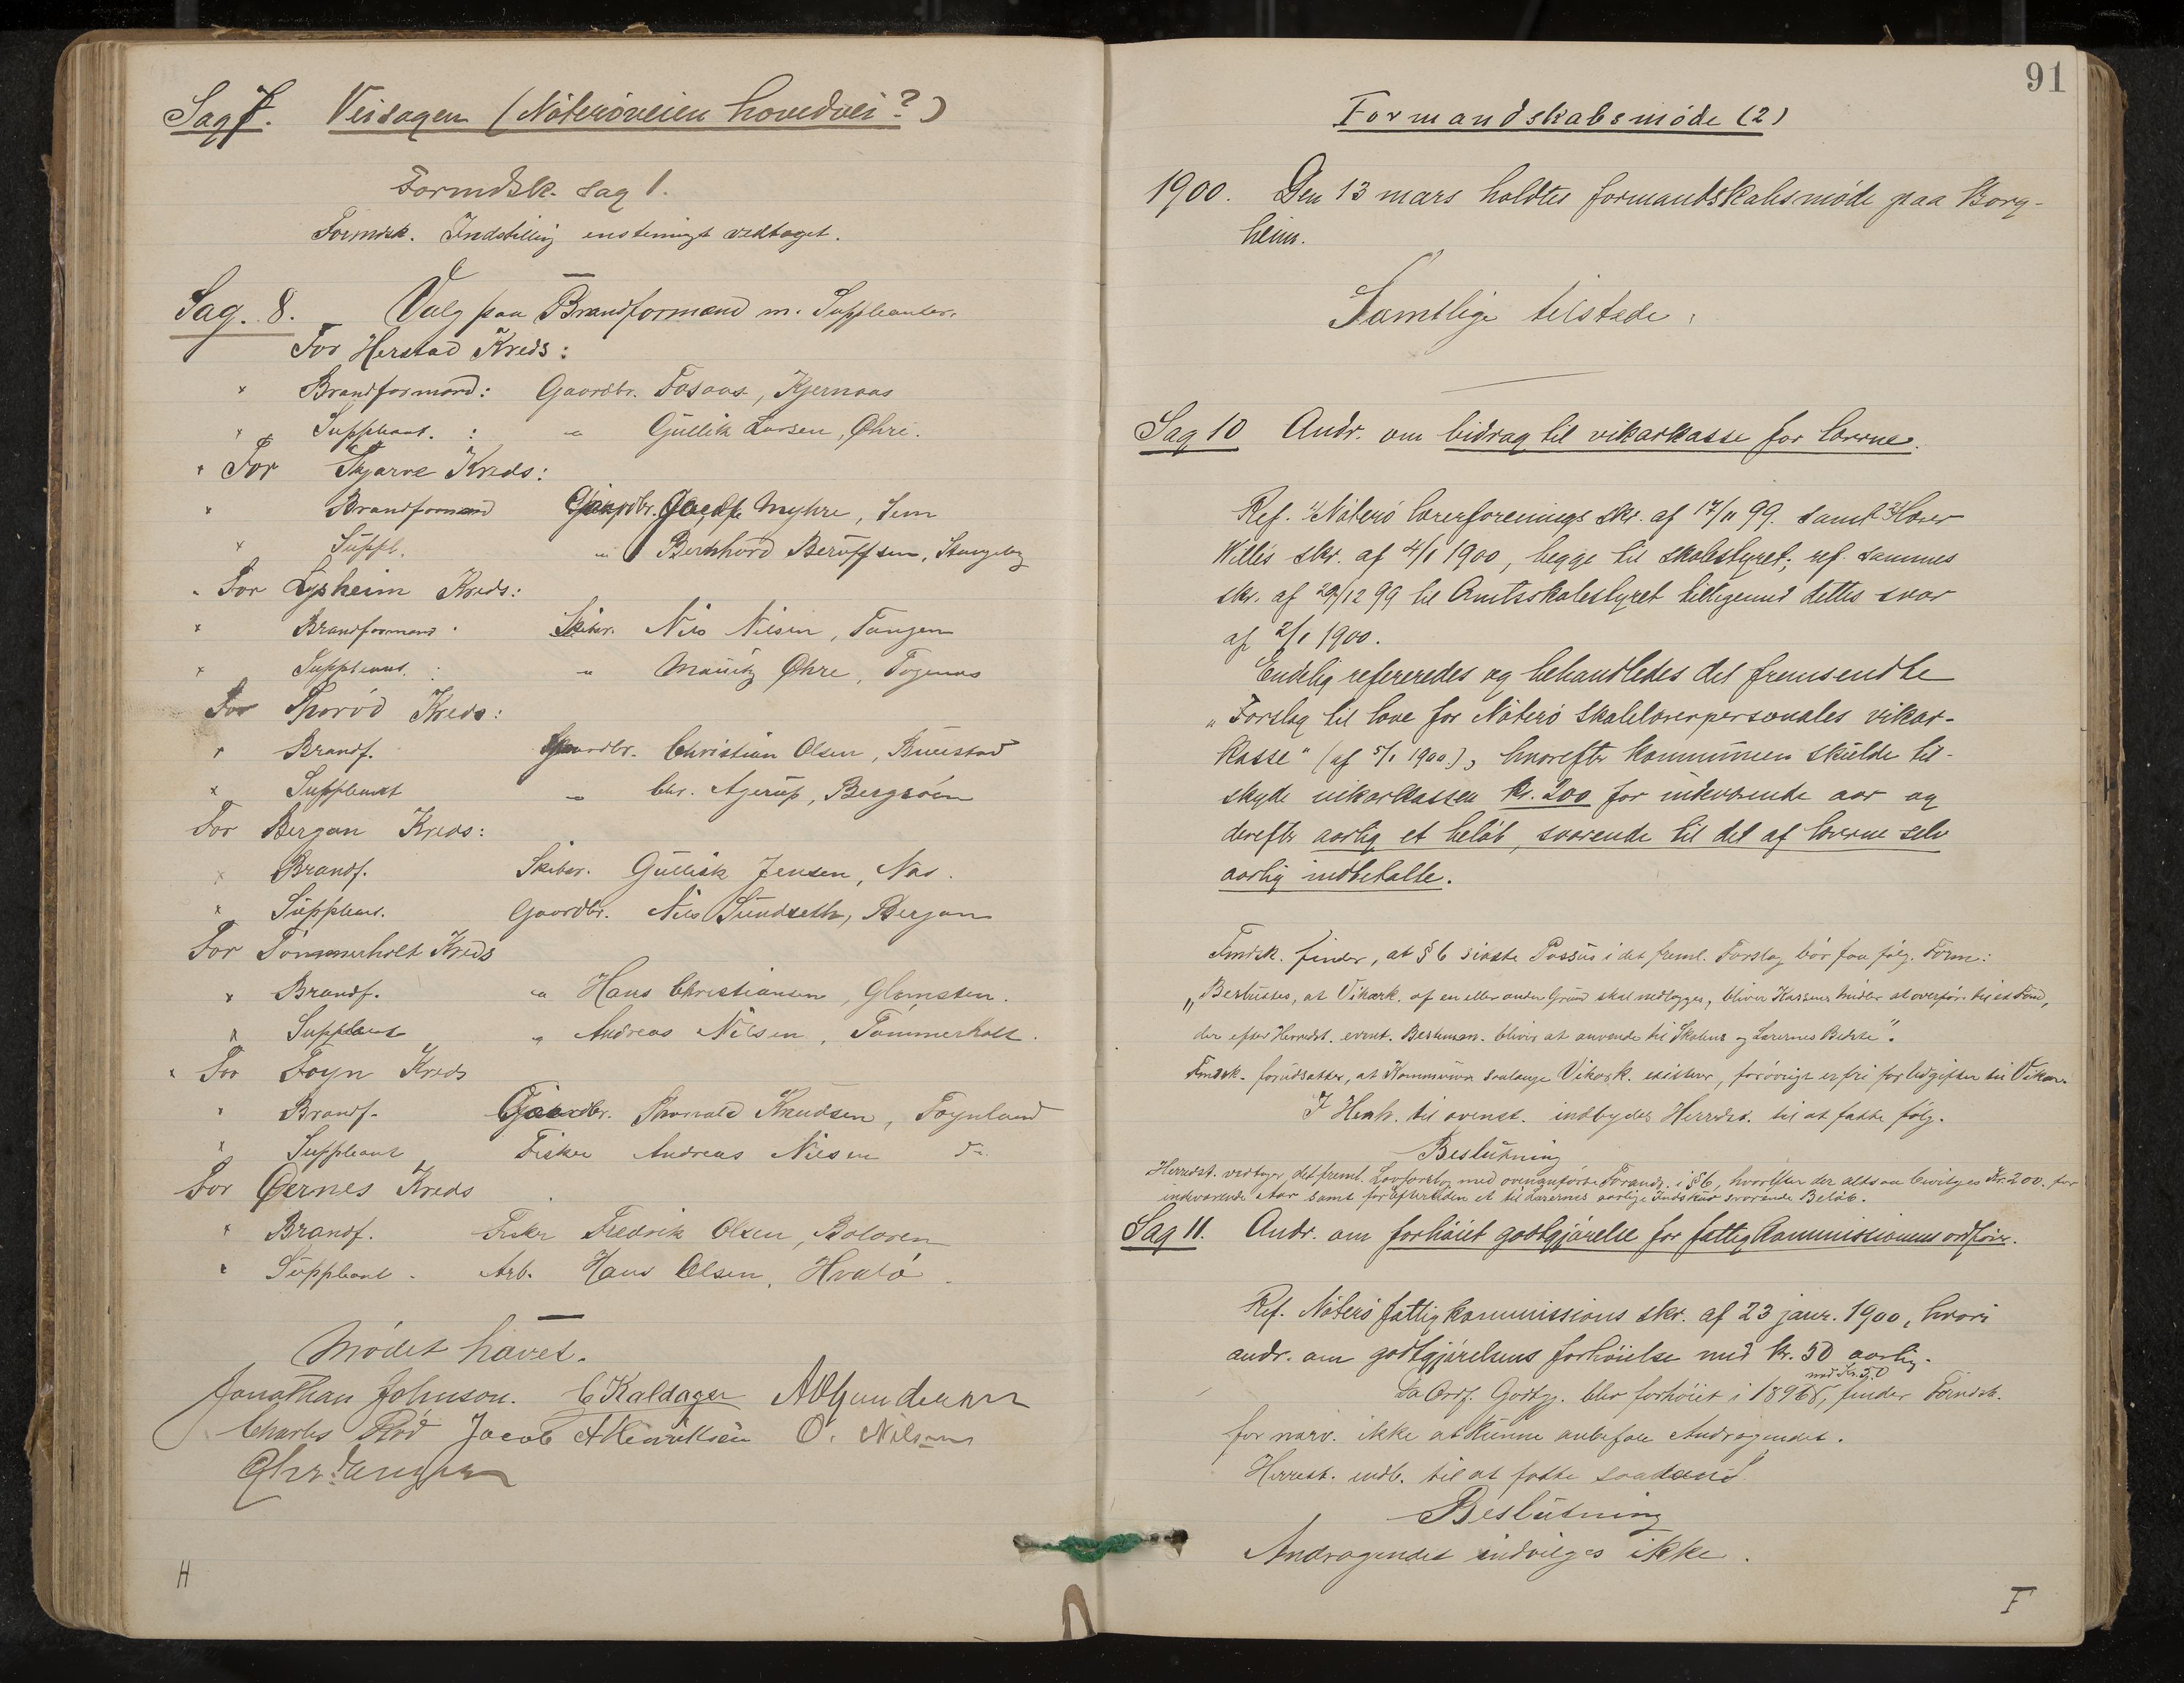 Sag 7. Veisagen (Nøterøveien hovedvei?)
Formdsk. sag 1.
Formdsk. Indstilling enstemmigt vedtaget.
Sag. 8. Valg paa Brandformænd m. Suppleanter.
For Herstad Kreds:
× Brandformand: Gaardbr. Fosaas, Kjernaas
× Suppleant. : " Gullik Larsen, Øhre.
× For Skjærve Kreds:
× Brandformand Gaardbr. Myhre, Sem
× Suppl. " Bernhard Beruffsen, Stangeby
For Lysheim Kreds:
× Brandformand. Skibsr. Nils Nilsen, Tangen
× Suppleant. : " Mauritz Øhre,
For Thorød Kreds:
× Brandf. Gaardbr. Christian Olsen, Buerstad
× Suppleant " Chr. Agerup,
For Bergan Kreds:
× Brandf. Skibsr. Gullik Jensen, Næs.
× Suppleant. Gaardbr. Nils Sundseth, Bergan
For Tømmerholt Kreds
× Brandf. " Hans Christiansen, Glomsten.
× Suppleant " Andreas Nilsen, Tømmerholt.
× For Foyn Kreds
× Brandf. Gaardbr. Thorvald Knudsen, Foynland
× Suppleant Fisker Andreas Nilsen do
For Ørsnes Kreds
× Brandf. Fisker Fredrik Olsen, Bolæren
× Suppleant. Arb. Hans Olsen, Hvalø.
Mødet hævet.
Jonathan Johnson. C Kaldager
Charles Rød Jacob A Henriksen O. Nilsen
H
91
Formandskabsmøde (2)
1900. Den 13 mars holdtes formandskabsmøde paa Borg-
heim.
Samtlige tilstede.
Sag 10 Andr. om bidrag til vikarkasse for lærerne.
Ref. 1) Nøterø lærerforenings skr. af 17/11 99. samt 2) lærer
Willes skr. af 4/1 1900, begge til skolestyret; ref. sammes
skr. af 29/12 99 til Amtsskolestyret tilligemed dettes svar
af 2/1 1900.
Endelig refereredes og behandledes det fremsendte
"Forslag til love for Nøterø skolelærerpersonales vikar-
kasse" (af 5/1 1900), hvorefter kommunen skulde til-
skyde vikarkassen kr. 200 for indeværende aar og
derefter aarlig et beløb, svarende til det af lærerne selv
aarlig indbetalte.
Fmdsk. finder, at § 6 sidste Passus i det freml. Forslag bør faa følg. Form:
"Besluttes, at Vikark. af en eller anden Grund skal nedlægges, bliver Kassens Midler at overføre til et Fond,
der efter Herredst. evnt. Bestemm. bliver at anvende til Skolens og Lærernes Bedste".
Fmdsk. forudsætter, at Kommunen saalænge Vikark. existerer, forøvrigt er fri for Udgifter til Vikar.
I Henh. til ovenst. indbydes Herredst. til at fatte følg.
Beslutning
Herredst. vedtager det freml. Lovforslag med ovenanførte Forandr. i § 6, hvorefter der altsaa bevilges Kr. 200. for
indeværende Aar samt for Eftertiden et til Lærernes aarlige Indskud svarende Beløb.
Sag 11. Andr. om forhøiet godtgjørelse for fattigkommissionens ordfører.
Ref. Nøterø fattigkommissions skr. af 23 janr. 1900, hvori
andr. om godtgjørelsens forhøielse med kr. 50 aarlig.
med Kr. 50
Da Ordf. Godtgj. blev forhøiet i 1898, finder Formdsk.
for nærv. ikke at kunne anbefale Andragendet.
Herredst. indb. til at fatte saadand
Beslutning
Andragendet indvilges ikke.
F